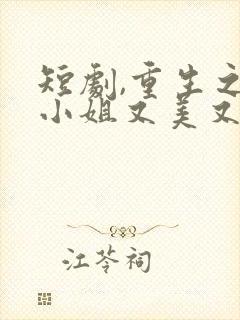 短劇,重生之
小姐又美又
江苓祠